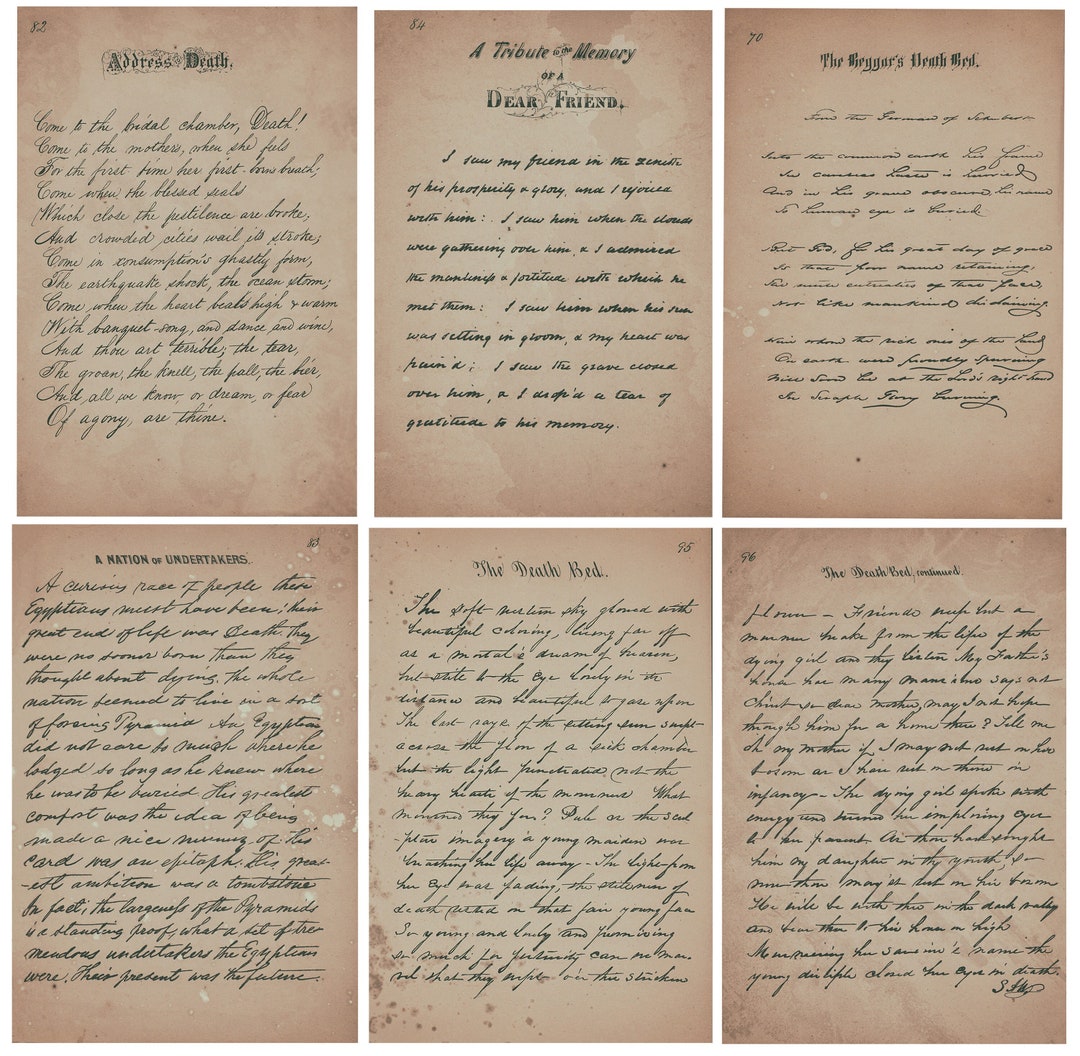 82
Address to Death.
Come to the bridal chamber, Death!
Come to the mothers, when she feels
For the first time her first-born breath;
Come when the blessed seals
Which close the pestilence are broke,
And crowded cities wail its stroke;
Come in consumption's ghastly form,
The earthquake shock, the ocean storm;
Come when the heart beats high & warm
With banquet-song, and dance and wine,
And thou art terrible; the tear,
The groan, the knell, the pall, the bier,
And all we know, or dream, or fear
Of agony, are thine.
84
A Tribute to the Memory
OF A
DEAR FRIEND.
I saw my friend in the zenith
of his prosperity & glory, and I rejoiced
with him: I saw him when the clouds
were gathering over him, & I admired
the manliness & fortitude with which he
met them: I saw him when his sun
was setting in gloom, & my heart was
pain'd; I saw the grave closed
over him, & I drop'd a tear of
gratitude to his memory.
70
The Beggar's Death Bed.
From the German of
Into the common earth his frame
In is
And in his grave obscured, his name
To human eye is buried.
But God, for his great day of grace
Is that poor name retaining,
of that face,
Nor like mankind disdaining.
the rich ones of the land
On earth were proudly spurning
Will soon be at the Lord's right hand
In Seraph Glory burning.
83
A NATION OF UNDERTAKERS.
A curious race of people these
Egyptians must have been; their
great end of life was Death. They
were no sooner born than they
thought about dying. The whole
nation seemed to live in a sort
of Pyramid. An Egyptian
did not care so much where he
lodged so long as he knew where
he was to be buried. His greatest
comfort was the idea of being
made a nice mummy of. His
card was an epitaph. His great-
-est ambition was a tombstone
In fact, the largeness of the Pyramids
is a standing proof, what a set of tre
mendous undertakers the Egyptians
were. Their present was the future.
95
The Death Bed.
The soft western sky glowed with
beautiful coloring, lying far off
as a mortal's dream of heaven,
but still to the eye lovely in its
distance and beautiful to gaze upon
The last rays of the setting sun swept
across the floor of a sick chamber
but its light penetrated not the
heavy hearts of the mourners. What
mourned they for? Pale as the scul
pture imagery a young maiden was
breathing her life away - The light from
her eye was fading, the stillness of
death rested on that fair young face
So young and lovely and promising
so much for futurity can we mar
vel that they wept o'er the stricken
96
The Death Bed, continued.
flower - Friends weep but a
murmur breaks from the lips of the
dying girl and they listen My Father's
house has many mansions says not
Christ so dear mother, may I not hope
through him for a home there? Tell me
oh my mother if I may not rest on his
bosom as I have rest on thine in
infancy - The dying girl spoke with
energy and turned her imploring eyes
to her parent As thou hast sought
him my daughter in thy youth, so
now thou may'st rest on his bosom
He will be with thee in the dark valley
and bear thee to his home on high
Murmuring her Saviour's name the
young disciple closed her eyes in death.